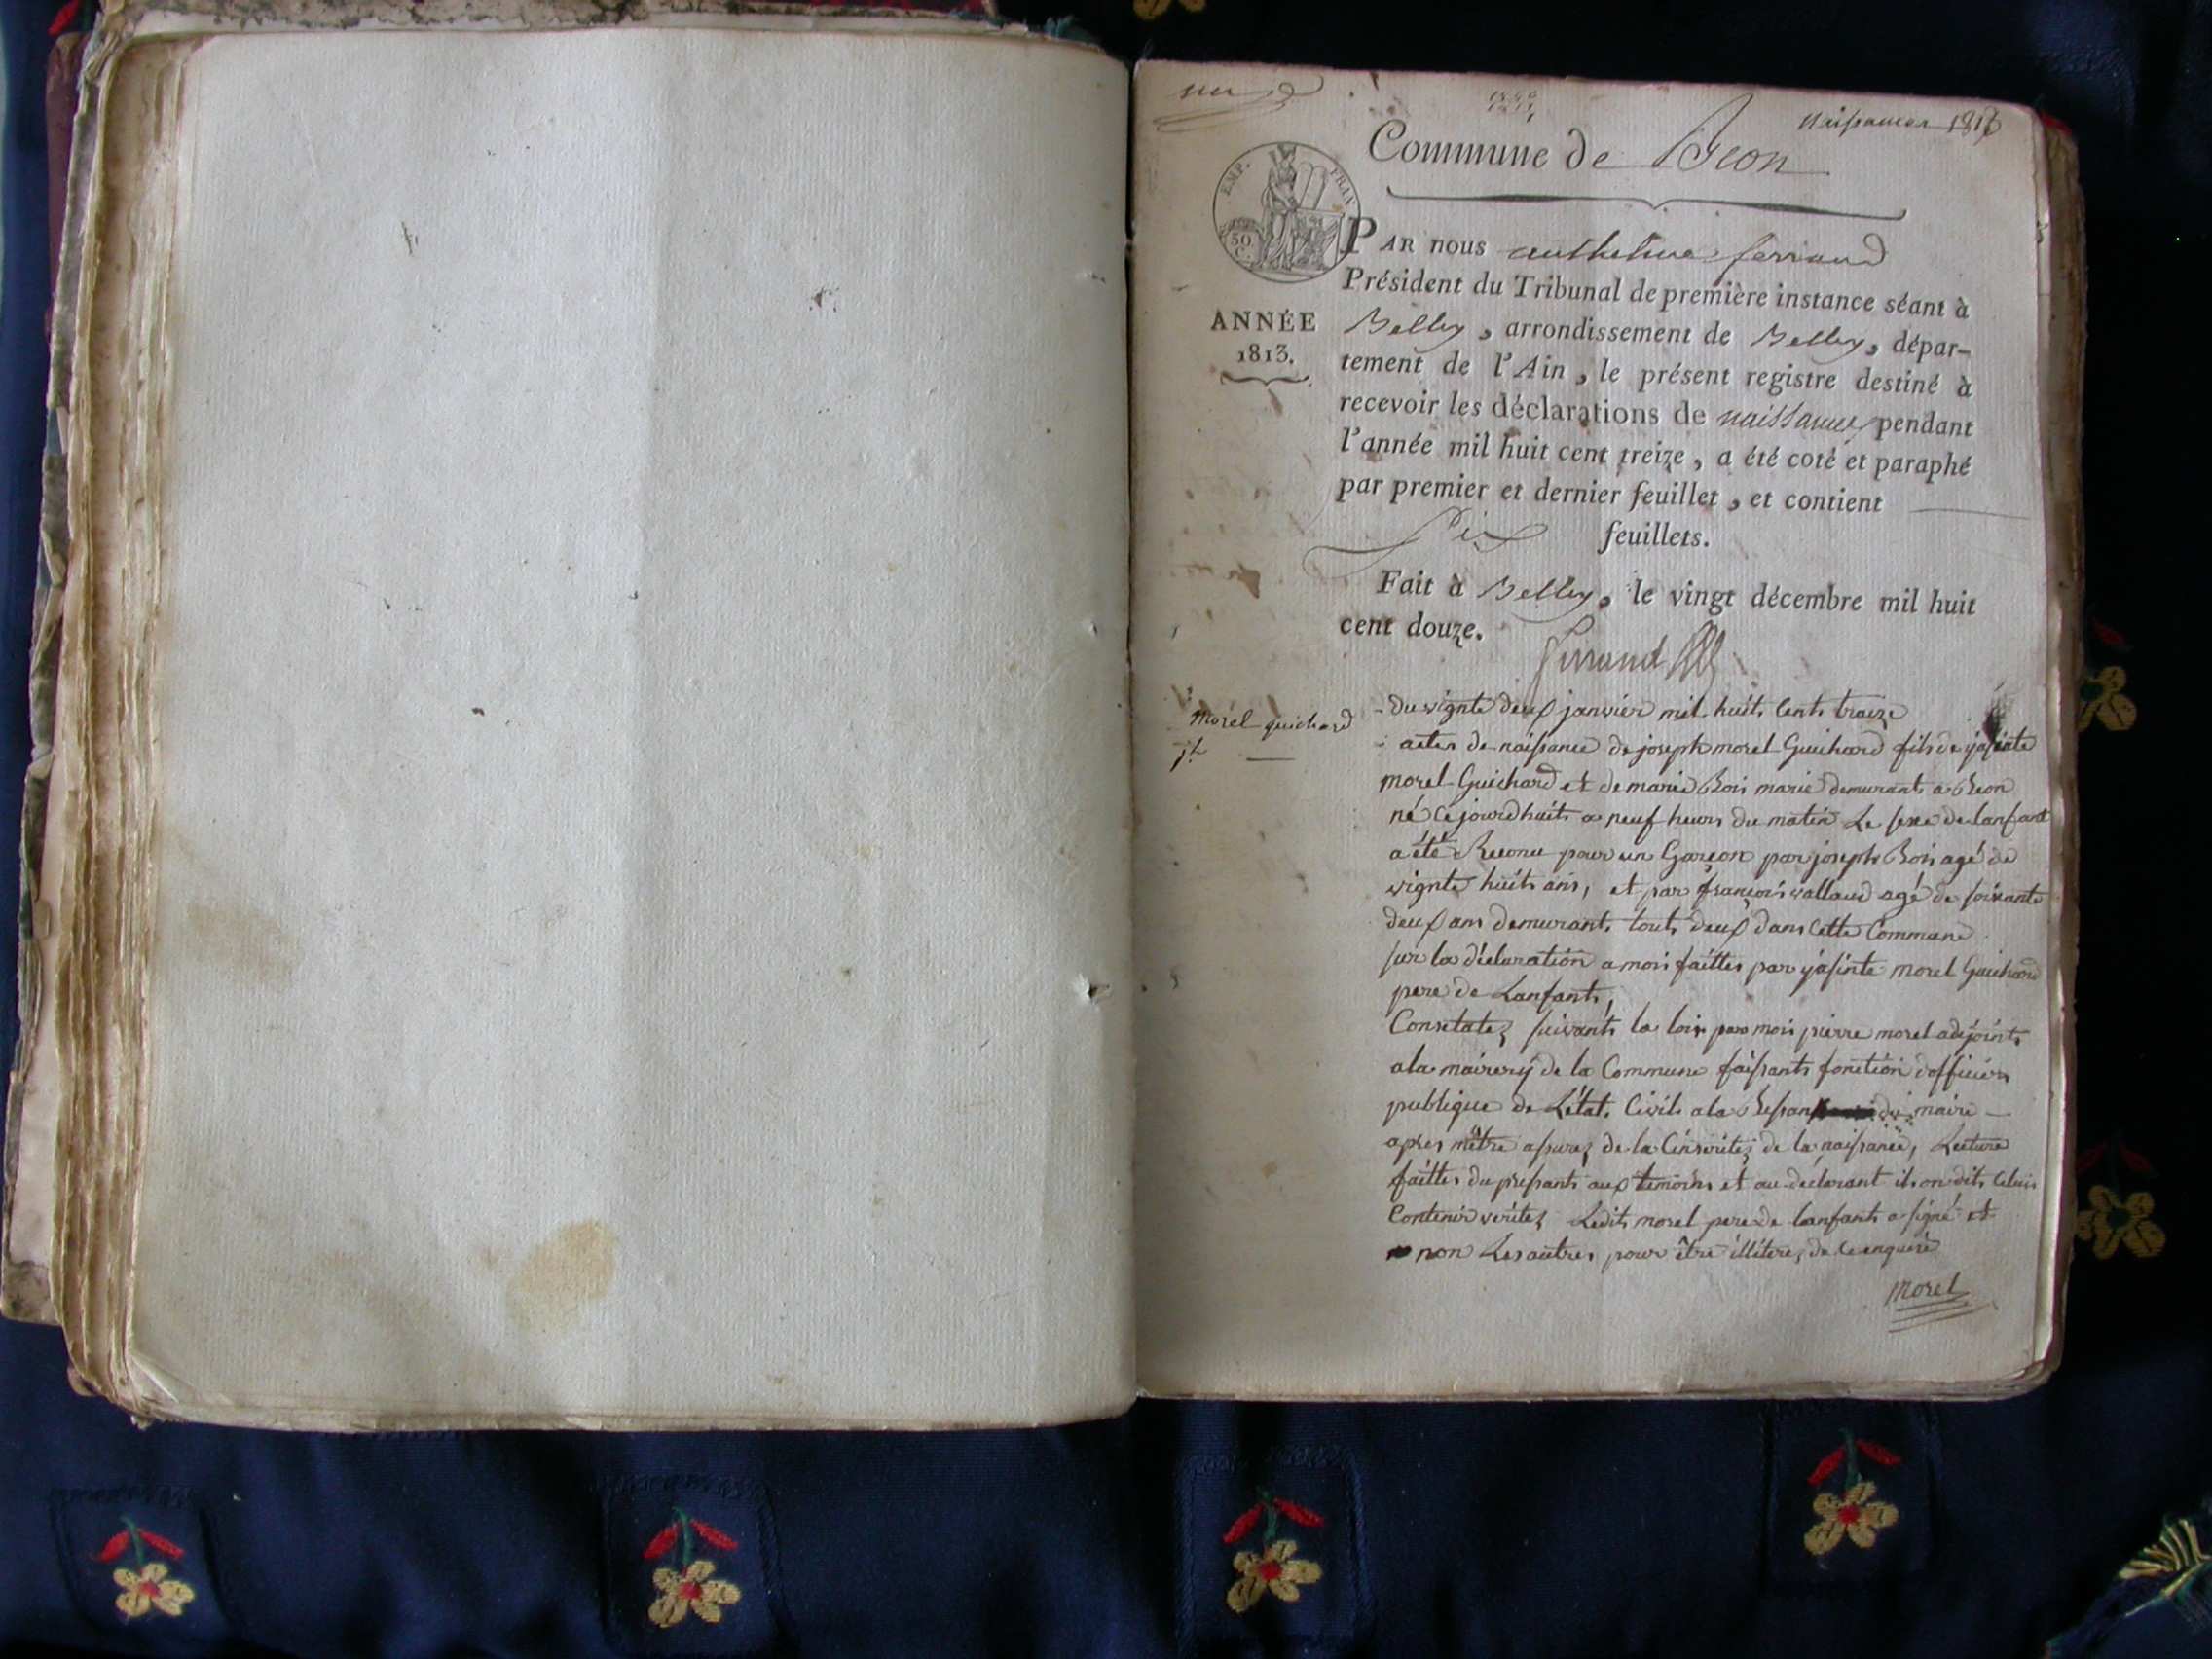 une
Naissances 1813
Commune de Béon
EMP. FRAN
50 C.
PAR nous anthelme ferrand
Président du Tribunal de première instance séant à
ANNÉE
1813.
Belley, arrondissement de Belley, dépar-
tement de l'Ain, le présent registre destiné à
recevoir les déclarations de naissance pendant
l'année mil huit cent treize, a été coté et paraphé
par premier et dernier feuillet, et contient
Six feuillets.
Fait à Belley, le vingt décembre mil huit
cent douze.
ferrand
morel guichard
Du vignte deux janvier mil huits Cents traize
actes de naissance de joseph morel Guichard fils de yasinte
morel Guichard et de marie Bois marié demurants a Béon
né Ce jourdhuits a neuf heurs du matin Le sexe de lanfant
a été Reconu pour un Garçon par joseph Bois agé de
vignte huits ans, et par françois vallaud agé de soixante
deux ans demurants touts deux dans Cette Commune
sur la déclaration a moi faittes par yasinte morel Guichard
pere de Lanfants,
Constatez suivants la loix par moi pierre morel adejoints
a la mairery de la Commune faisants fonction dofficier
publique de Létat Civils a la du maire
apres mêtre assurez de la Cinserités de la naissance, Lecture
faittes du presants aux temoins et au declarant ils on dits Celuis
Contenir verités Ledit morel pere de lanfants a signé et
non Les autres pour être illitere, de Ce enqueré
Morel